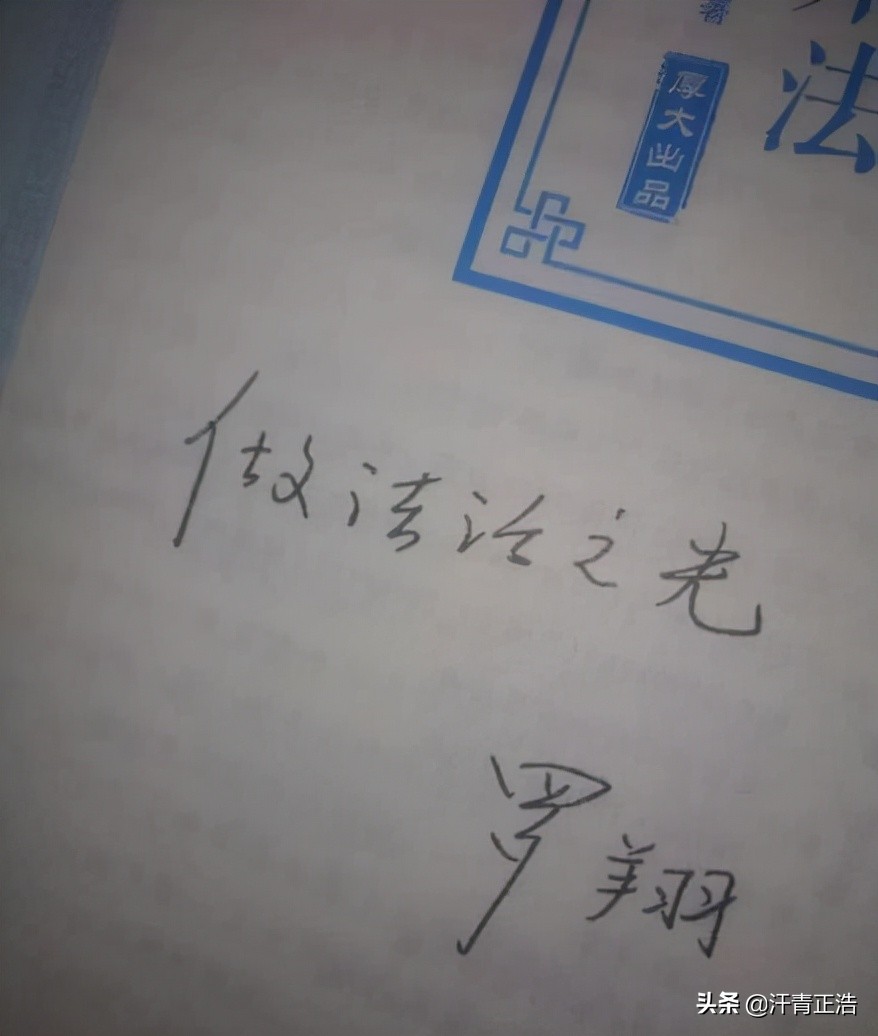 著
法
厚大出品
做法治之光
罗翔
头条 @汗青正浩